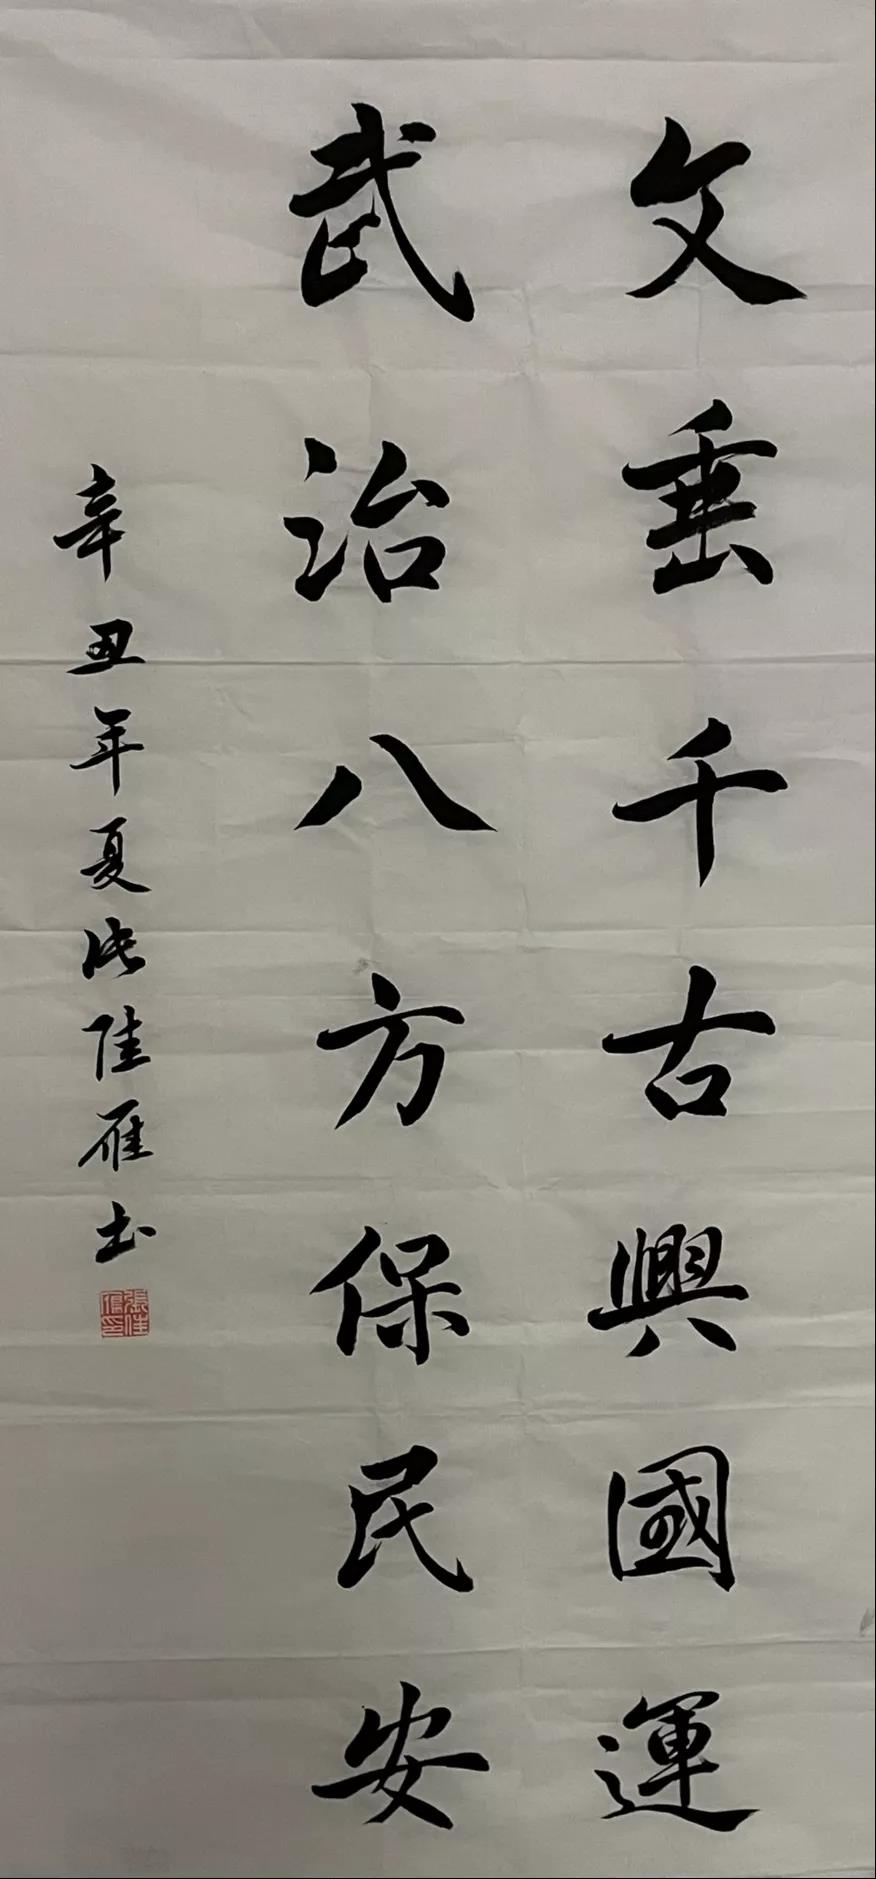 文垂千古興國運
武治八方保民安
辛丑年夏张佳雁书
張佳雁印